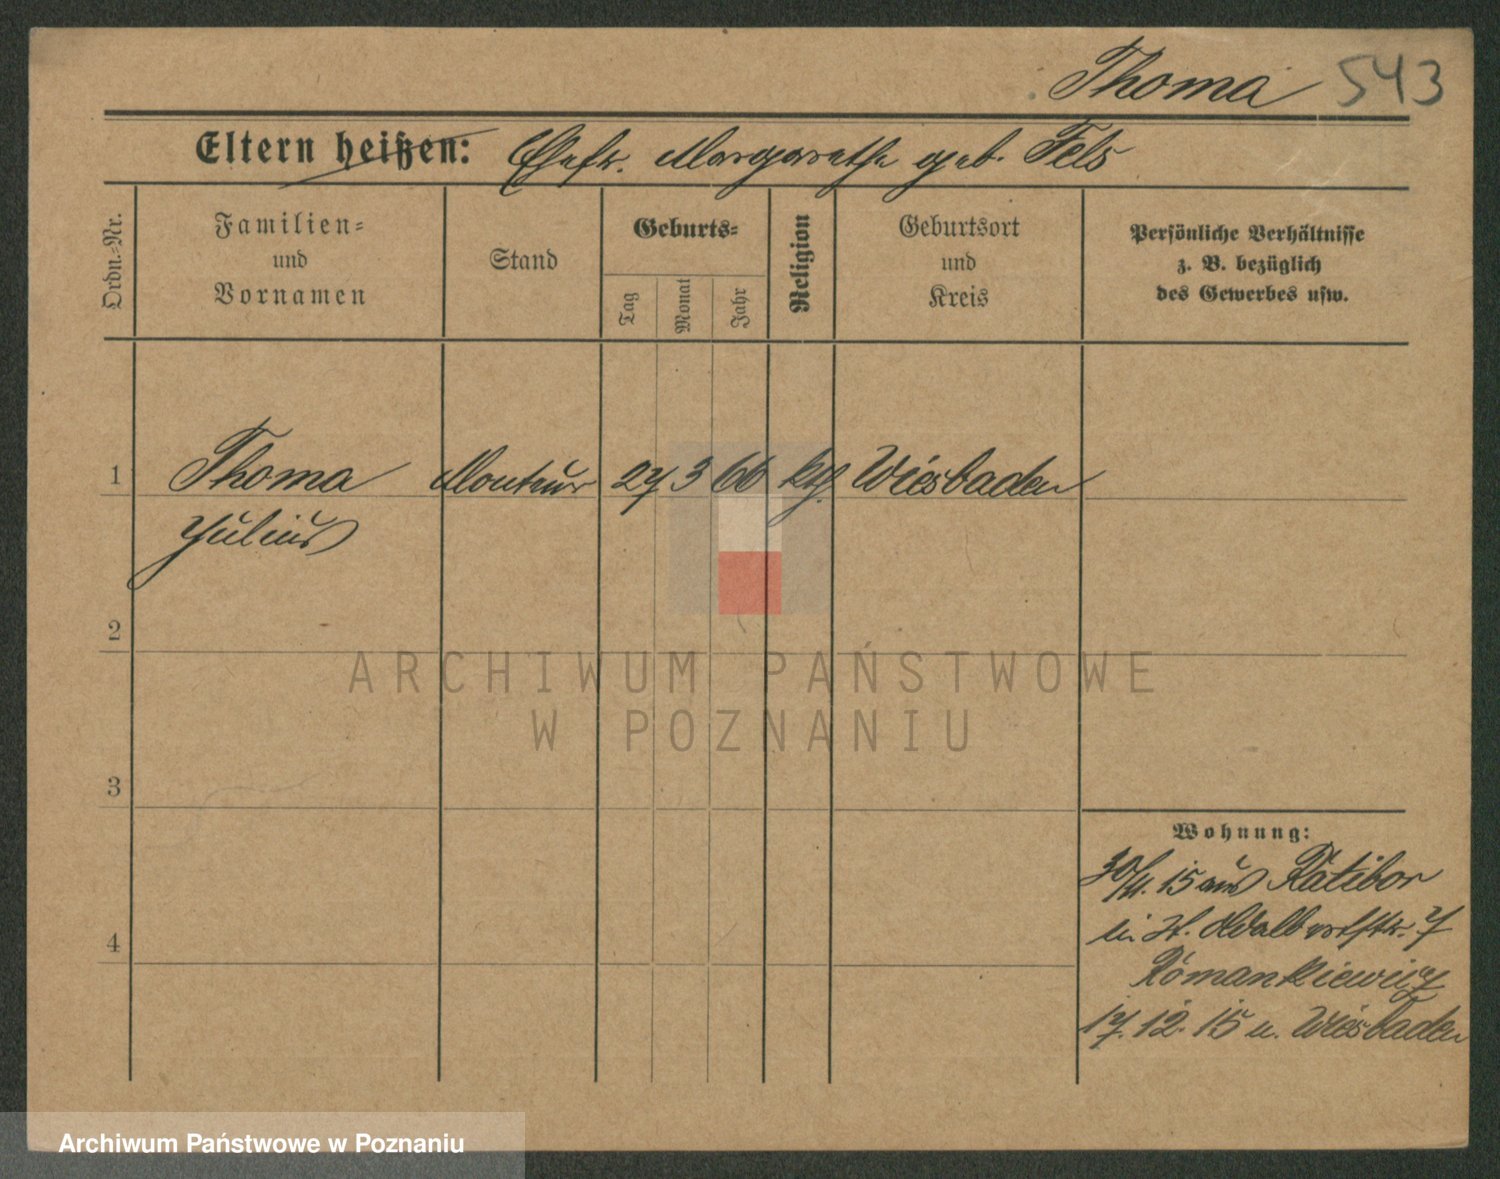 Thoma 543
Eltern heißen: Ehefr. Margarethe geb. Fels
Ordn.-Nr.
Familien=
und
Vornamen
Stand
Geburts=
Tag
Monat
Jahr
Religion
Geburtsort
und
Kreis
Persönliche Verhältnisse
z. B. bezüglich
des Gewerbes usw.
1 Thoma Monteur 27 3 66 kth. Wiesbaden
Julius
2
3
4
Wohnung:
30/11. 15 aus Ratibor
in St. Adalbertstr. 7
Romankiewicz
17. 12. 15 n. Wiesbaden
ARCHIWUM PAŃSTWOWE
W POZNANIU
Archiwum Państwowe w Poznaniu